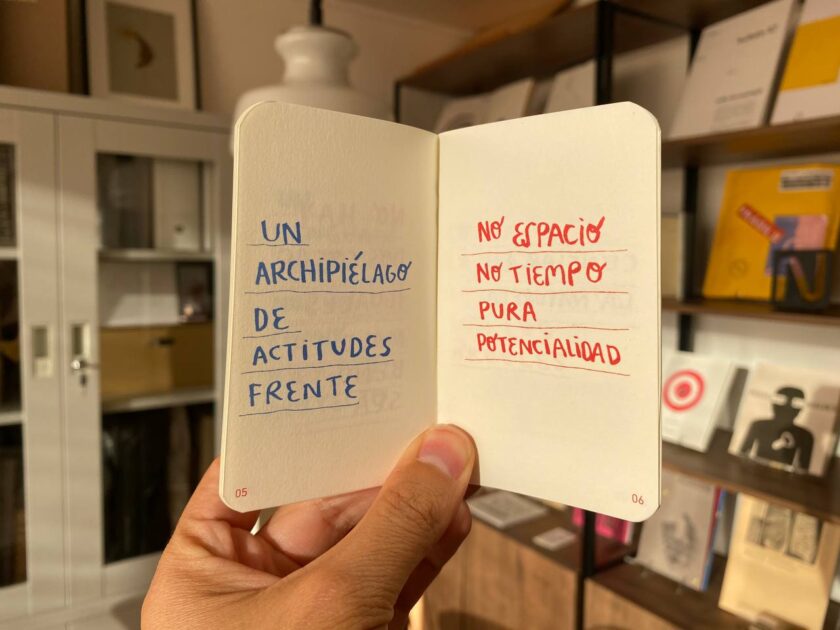 UN
ARCHIPIÉLAGO
DE
ACTITUDES
FRENTE
05
NO ESPACIO
NO TIEMPO
PURA
POTENCIALIDAD
06